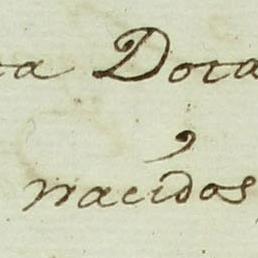 ca Dota
nacidos